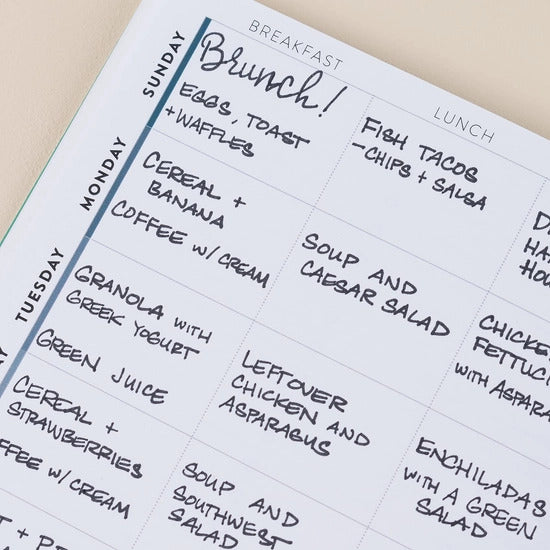 BREAKFAST
LUNCH
SUNDAY
Brunch!
EGGS, TOAST
+ WAFFLES
FISH TACOS
- CHIPS + SALSA
MONDAY
CEREAL +
BANANA
COFFEE W/ CREAM
SOUP AND
CAESAR SALAD
TUESDAY
GRANOLA WITH
GREEK YOGURT
GREEN JUICE
LEFTOVER
CHICKEN AND
ASPARAGUS
WITH
CEREAL +
STRAWBERRIES
W/ CREAM
SOUP AND
SOUTHWEST
SALAD
ENCHILADAS
WITH A GREEN
SALAD